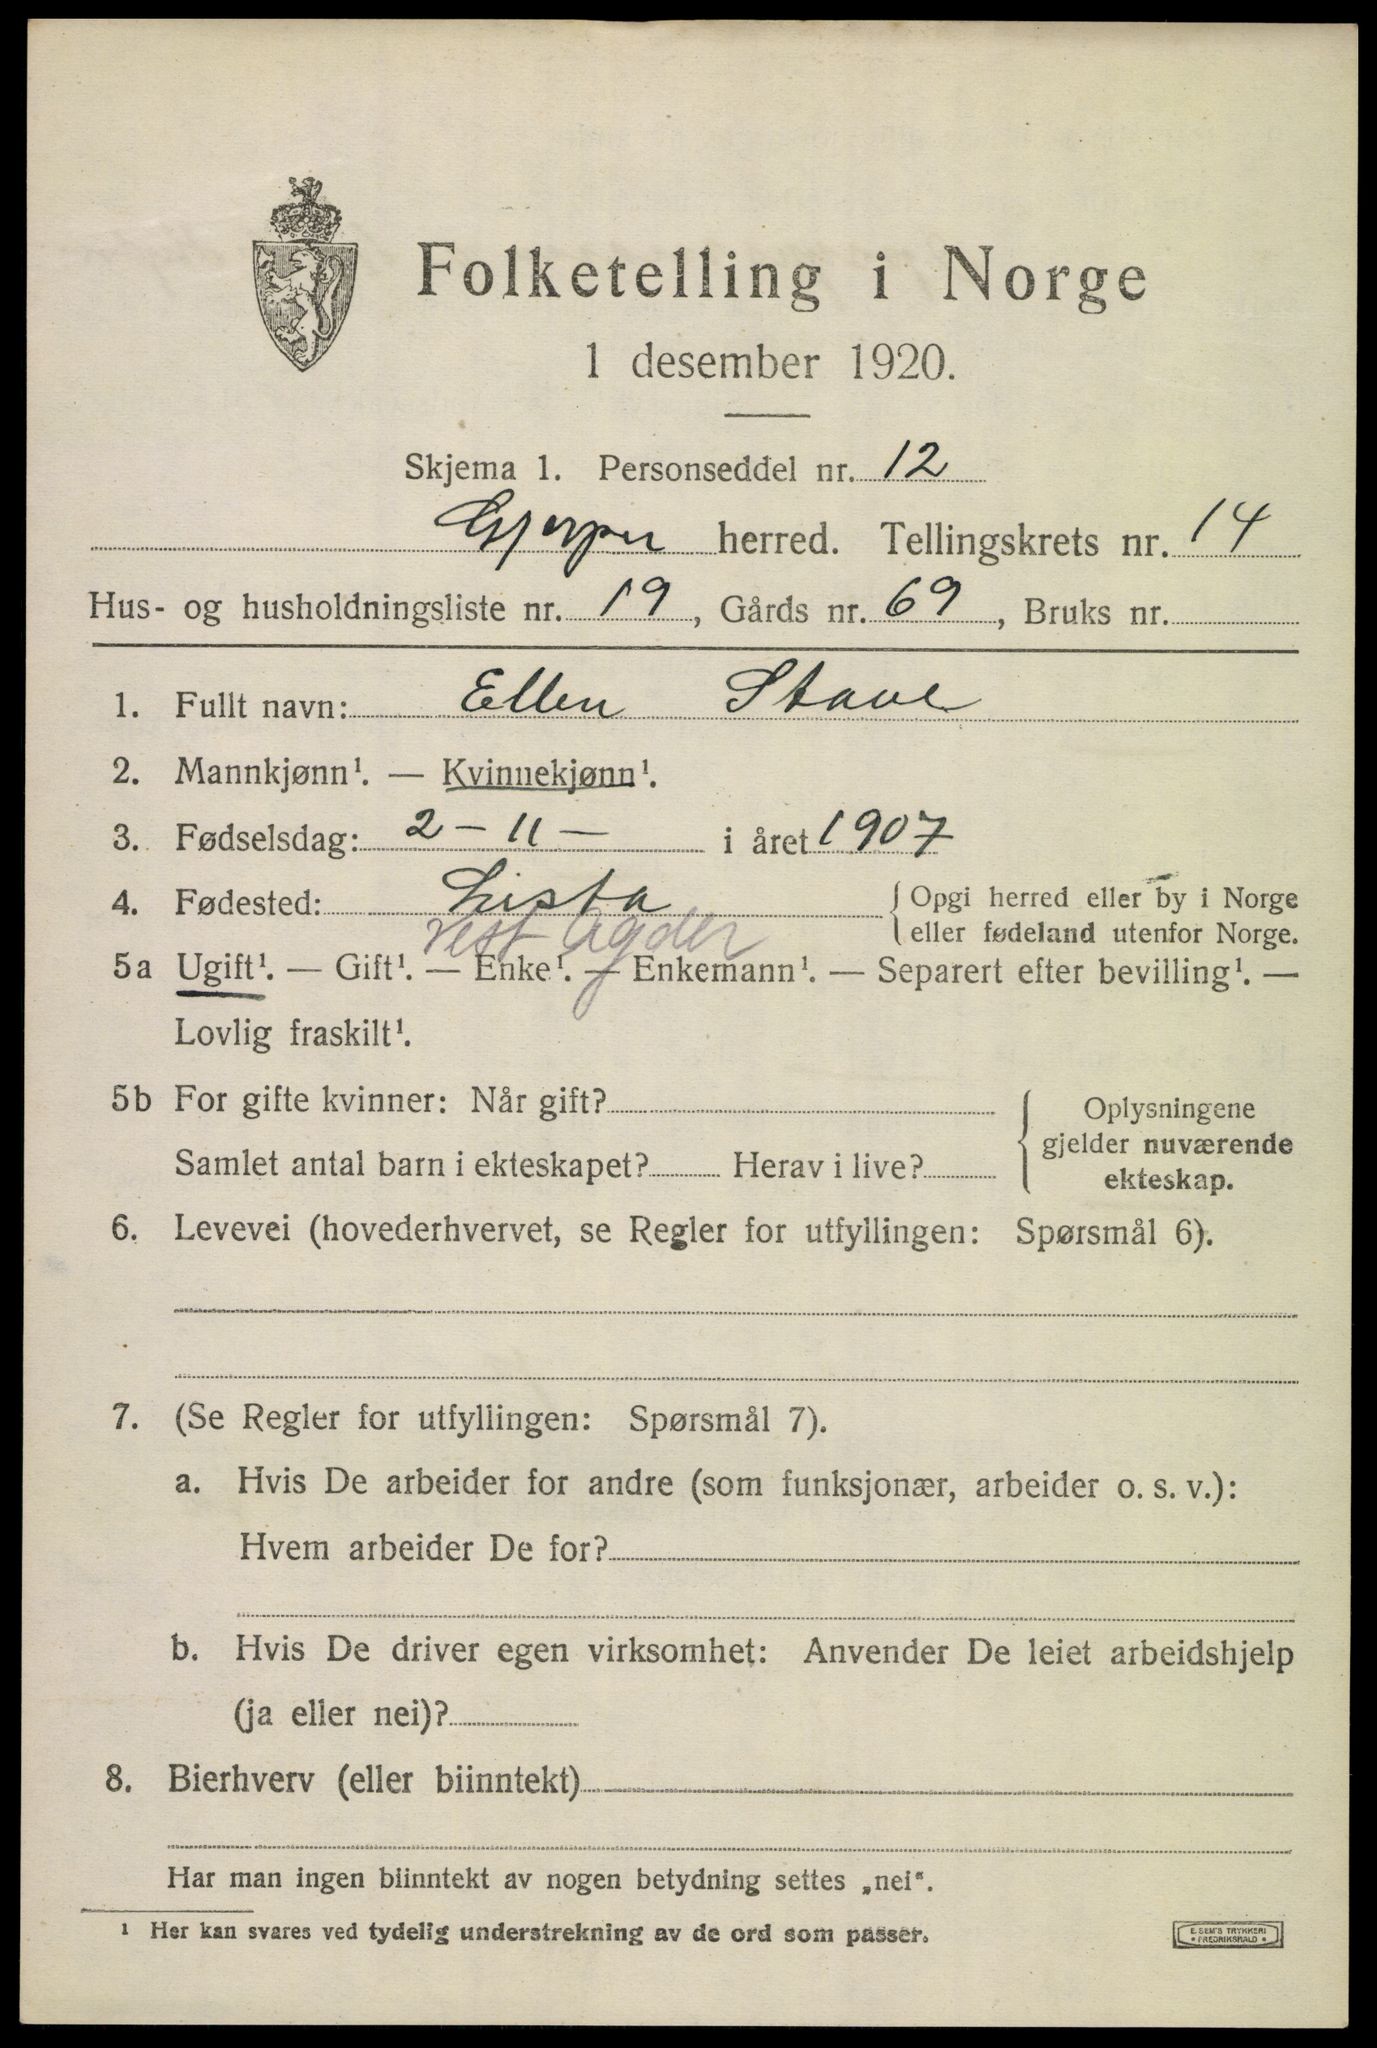 Folketelling i Norge
1 desember 1920.
Skjema 1. Personseddel nr. 12
Gjerpen herred. Tellingskrets nr. 14
Hus- og husholdningsliste nr. 19, Gårds nr. 69, Bruks nr.
1. Fullt navn: Ellen Stave
2. Mannkjønn¹. — Kvinnekjønn¹.
3. Fødselsdag: 2 – 11 – i året 1907
4. Fødested: Lista { Opgi herred eller by i Norge
eller fødeland utenfor Norge.
Vest Agder
5a Ugift¹. — Gift¹. — Enke¹. — Enkemann¹. — Separert efter bevilling¹. —
Lovlig fraskilt¹.
5b For gifte kvinner: Når gift?
Samlet antal barn i ekteskapet? Herav i live?
{ Oplysningene
gjelder nuværende
ekteskap.
6. Levevei (hovederhvervet, se Regler for utfyllingen: Spørsmål 6).
7. (Se Regler for utfyllingen: Spørsmål 7).
a. Hvis De arbeider for andre (som funksjonær, arbeider o. s. v.):
Hvem arbeider De for?
b. Hvis De driver egen virksomhet: Anvender De leiet arbeidshjelp
(ja eller nei)?
8. Bierhverv (eller biinntekt)
Har man ingen biinntekt av nogen betydning settes „nei“.
¹ Her kan svares ved tydelig understrekning av de ord som passer.
E. SEM'S TRYKKERI
• FREDRIKSHALD •